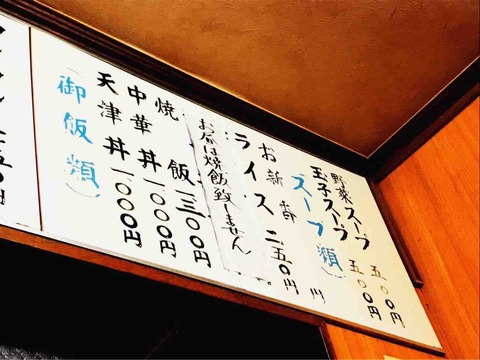 野菜スープ 五〇〇円
玉子スープ 五〇〇円
(スープ類)
お新香 円
ライス 二五〇円
お昼は焼飯致しません
焼飯 一三〇〇円
中華丼 一〇〇〇円
天津丼 一〇〇〇円
(御飯類)
五〇円